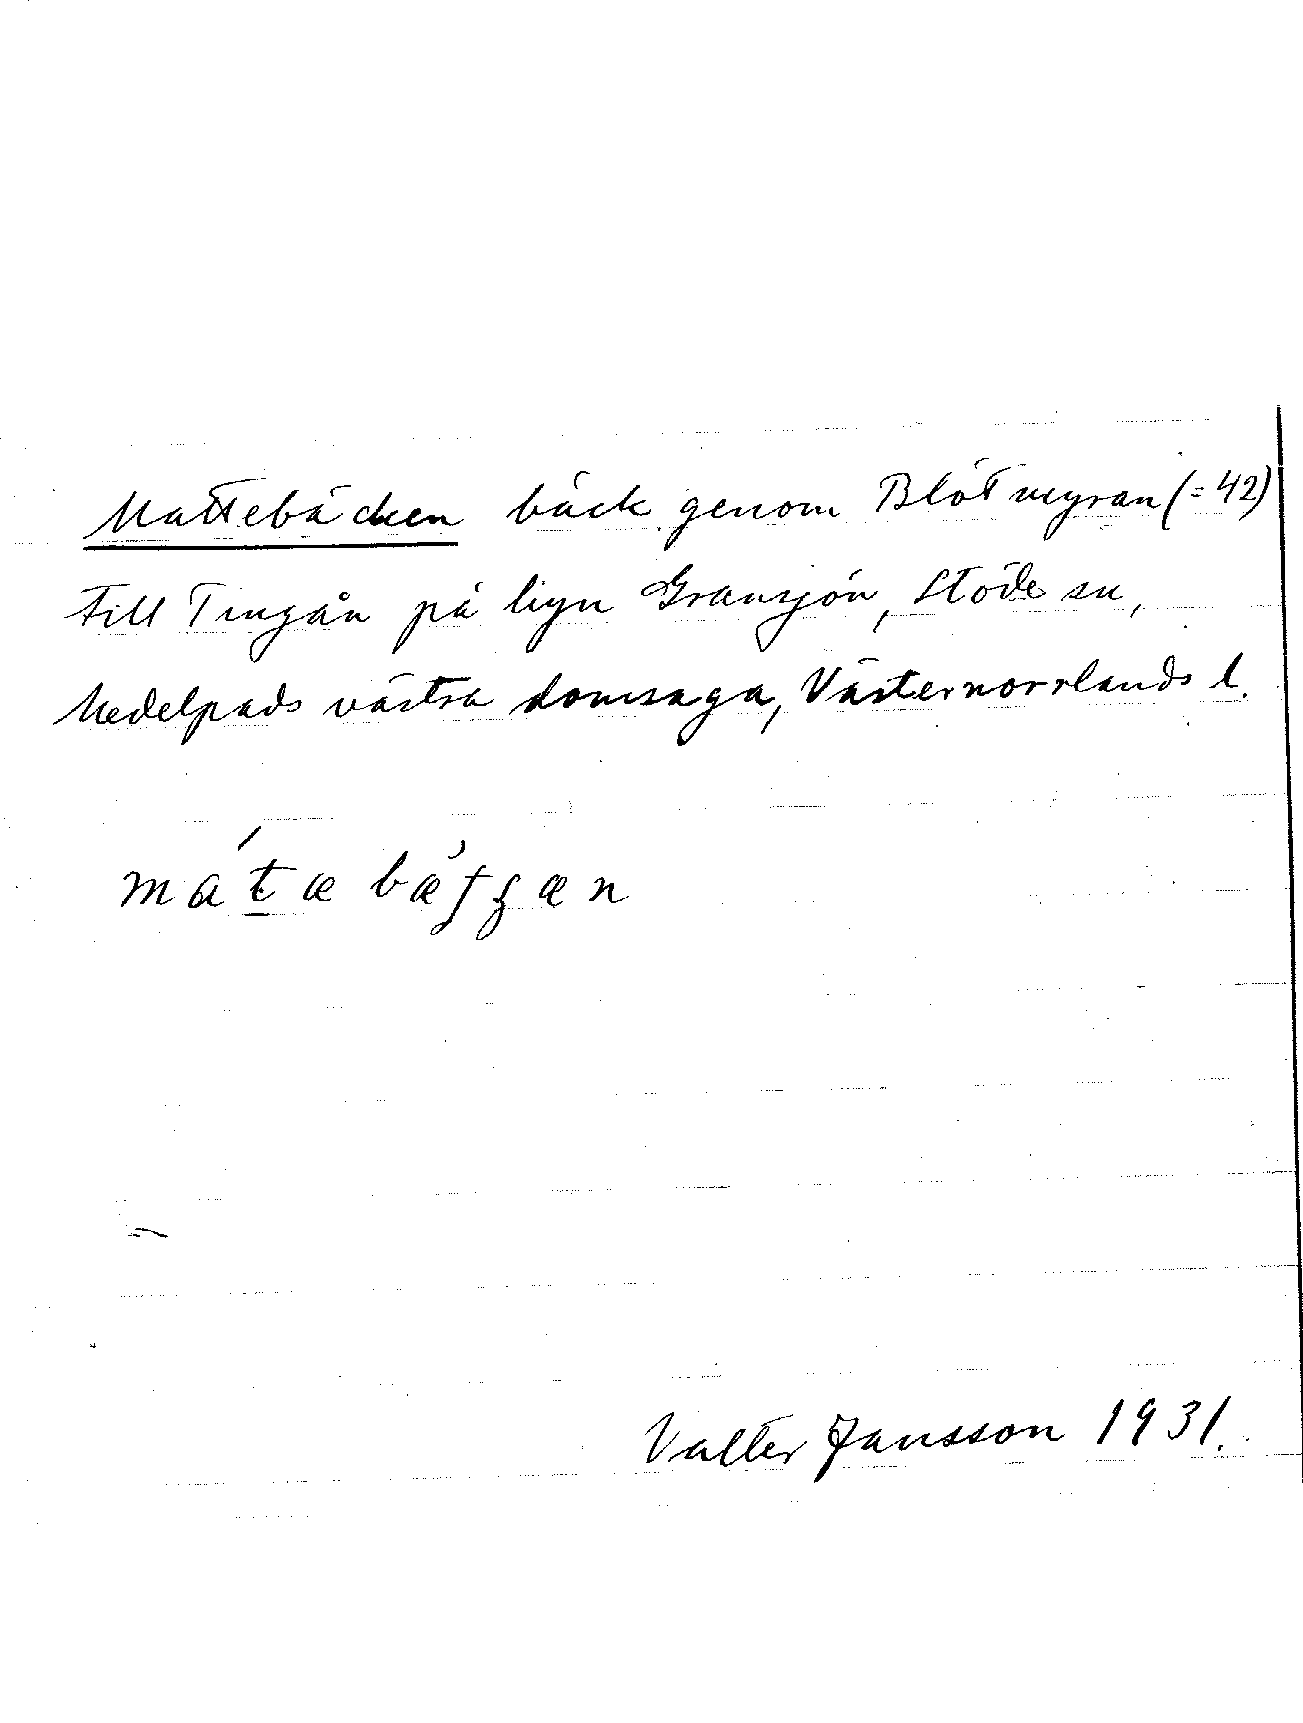 Mattebäcken bäck genom Blötmyran (=42)
till Tingån på byn Gransjön, Stöde sn,
Medelpads västra domsaga, Västernorrlands l.
Valter Jansson 1931.